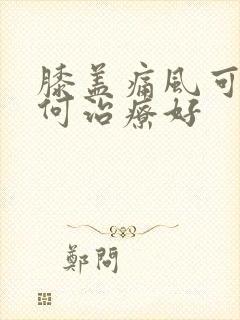 膝盖痛風可
何治療好
鄭問